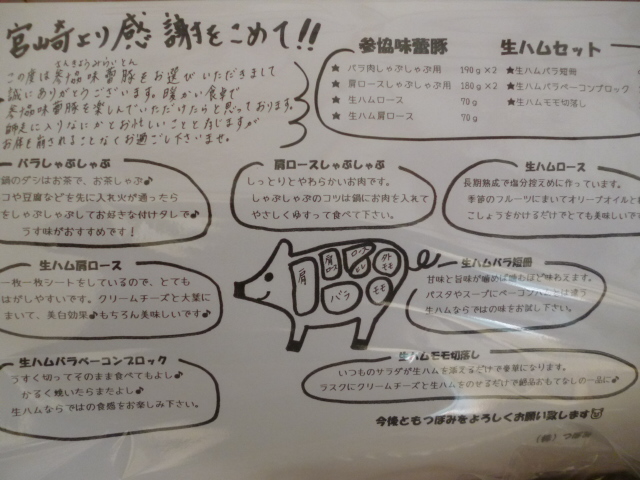 宮崎より感謝をこめて!!
さんきょうみらいとん
この度は参協味蕾豚をお選びいただきまして
誠にありがとうございます。暖かい食卓で
参協味蕾豚を楽しんでいただけたらと思っております。
師走に入りなにかとお忙しいことと存じますが
お体を崩されることなくお過ごし下さいませ。
参協味蕾豚
★ バラ肉しゃぶしゃぶ用 190g×2
★ 肩ロースしゃぶしゃぶ用 180g×2
★ 生ハムロース 70g
★ 生ハム肩ロース 70g
生ハムセット
★生ハムバラ短冊
★生ハムバラベーコンブロック
★生ハムモモ切落し
バラしゃぶしゃぶ
鍋のダシはお茶で、お茶しゃぶ♪
コや豆腐などを先に入れ火が通ったら
をしゃぶしゃぶしてお好きな付けタレで♪
うす味がおすすめです!
肩ロースしゃぶしゃぶ
しっとりとやわらかいお肉です。
しゃぶしゃぶのコツは鍋にお肉を入れて
やさしくゆすって食べて下さい。
生ハムロース
長期熟成で塩分控えめに作っています。
季節のフルーツにまいてオリーブオイルと
こしょうをかけるだけでとても美味しいです
生ハム肩ロース
一枚一枚シートをしているので、とても
はがしやすいです。クリームチーズと大葉に
まいて、美白効果♪もちろん美味しいです♪
肩
肩ロース
ロース
バラ
外モモ
モモ
生ハムバラ短冊
甘味と旨味が噛めば噛むほど味わえます。
パスタやスープにベーコンハムとは違う
生ハムならではの味をお試し下さい。
生ハムバラベーコンブロック
うすく切ってそのまま食べてもよし♪
かるく焼いたらまたよし♪
生ハムならではの食感をお楽しみ下さい。
生ハムモモ切落し
いつものサラダが生ハムを添えるだけで豪華になります。
ラスクにクリームチーズと生ハムをのせるだけで絶品おもてなしの一品に♪
今後ともつぼみをよろしくお願い致します
(有) つぼみ